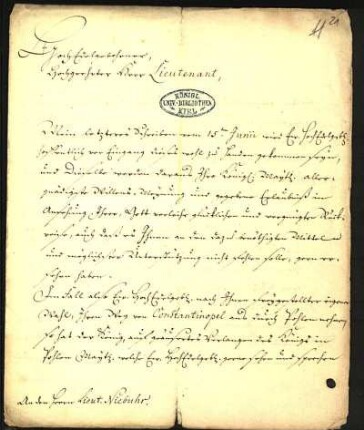 HochEdelgebohrner,
Hochgeehrter Herr Lieutenant,
KÖNIGL.
UNIV.-BIBLIOTHEK
KIEL
Mein letzteres Schreiben vom 15ten Junii wird Ew. HochEdelgeb.
hoffentlich vor Eingang dieses wohl zu Handen gekommen seyn,
und Dieselbe werden daraus Ihro Königl. Maytt. aller-
gnädigste Willens-Meynung und gegebene Erlaubniß in
Ansehung Ihrer, Gott verleihe glücklichen und vergnügten Rück-
reise, auch daß es Ihnen an den dazu benöthigten Mitteln
und möglichster Unterstützung nicht fehlen solle, gern er-
sehen haben.
Im Fall also Ew. HochEdelgeb. nach Ihrer eigenen
Wahl, Ihren Weg von Constantinopel aus durch Pohlen nehmen,
so hat der König, auf Verlangen des Königs in
Pohlen Maytt. welche Ew. HochEdelgeb. gerne sehen und sprechen
An den Herrn Lieut. Niebuhr.